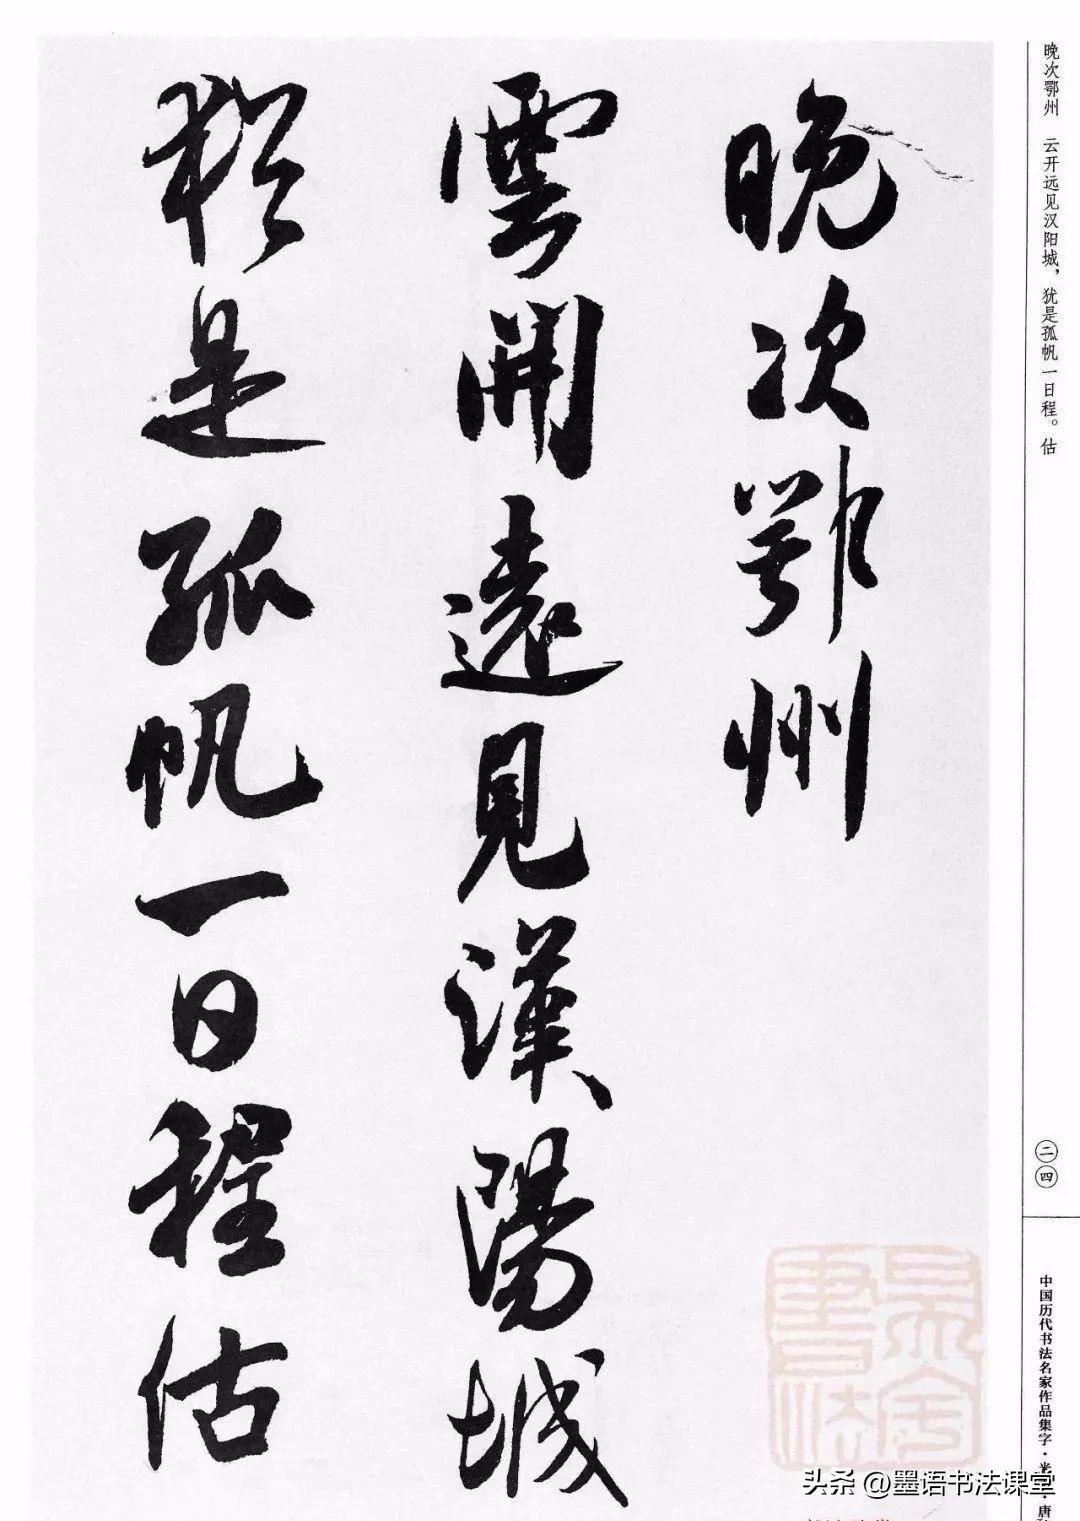 晚次鄂州
雲開遠見漢陽城
猶是孤帆一日程估
晚次鄂州　云开远见汉阳城，犹是孤帆一日程。估
二四
中国历代书法名家作品集字·米
·唐
头条 @墨语书法课堂